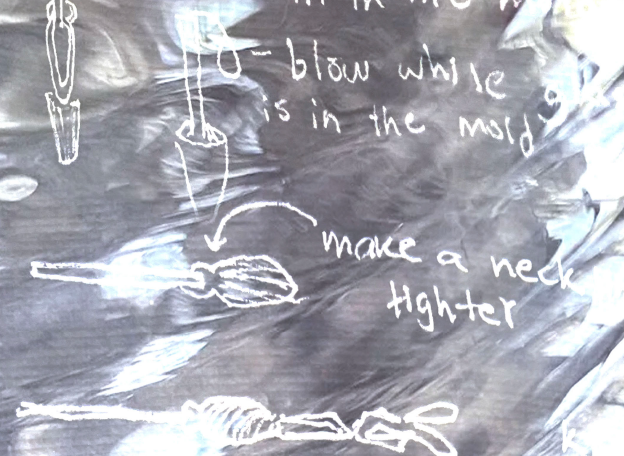 - blow while
is in the mold
make a neck
tighter